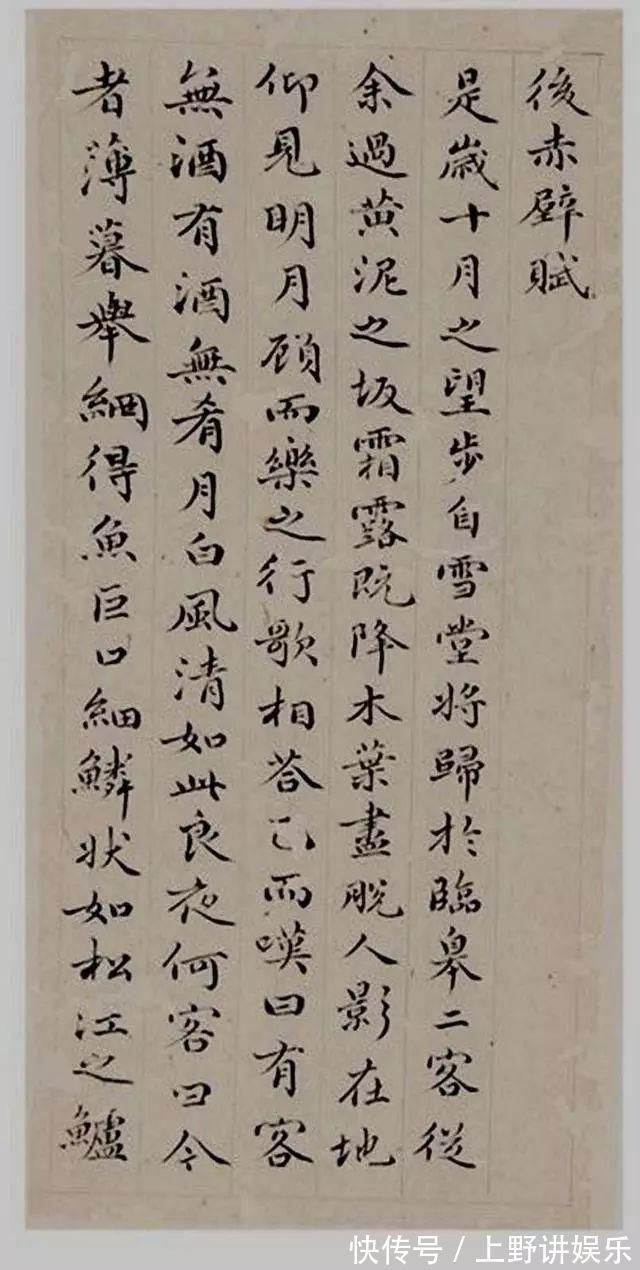 後赤壁賦
是歲十月之望步自雪堂將歸於臨皋二客從
余過黃泥之坂霜露既降木葉盡脫人影在地
仰見明月顧而樂之行歌相答已而嘆曰有客
無酒有酒無肴月白風清如此良夜何客曰今
者薄暮舉網得魚巨口細鱗狀如松江之鱸
快传号／上野讲娱乐